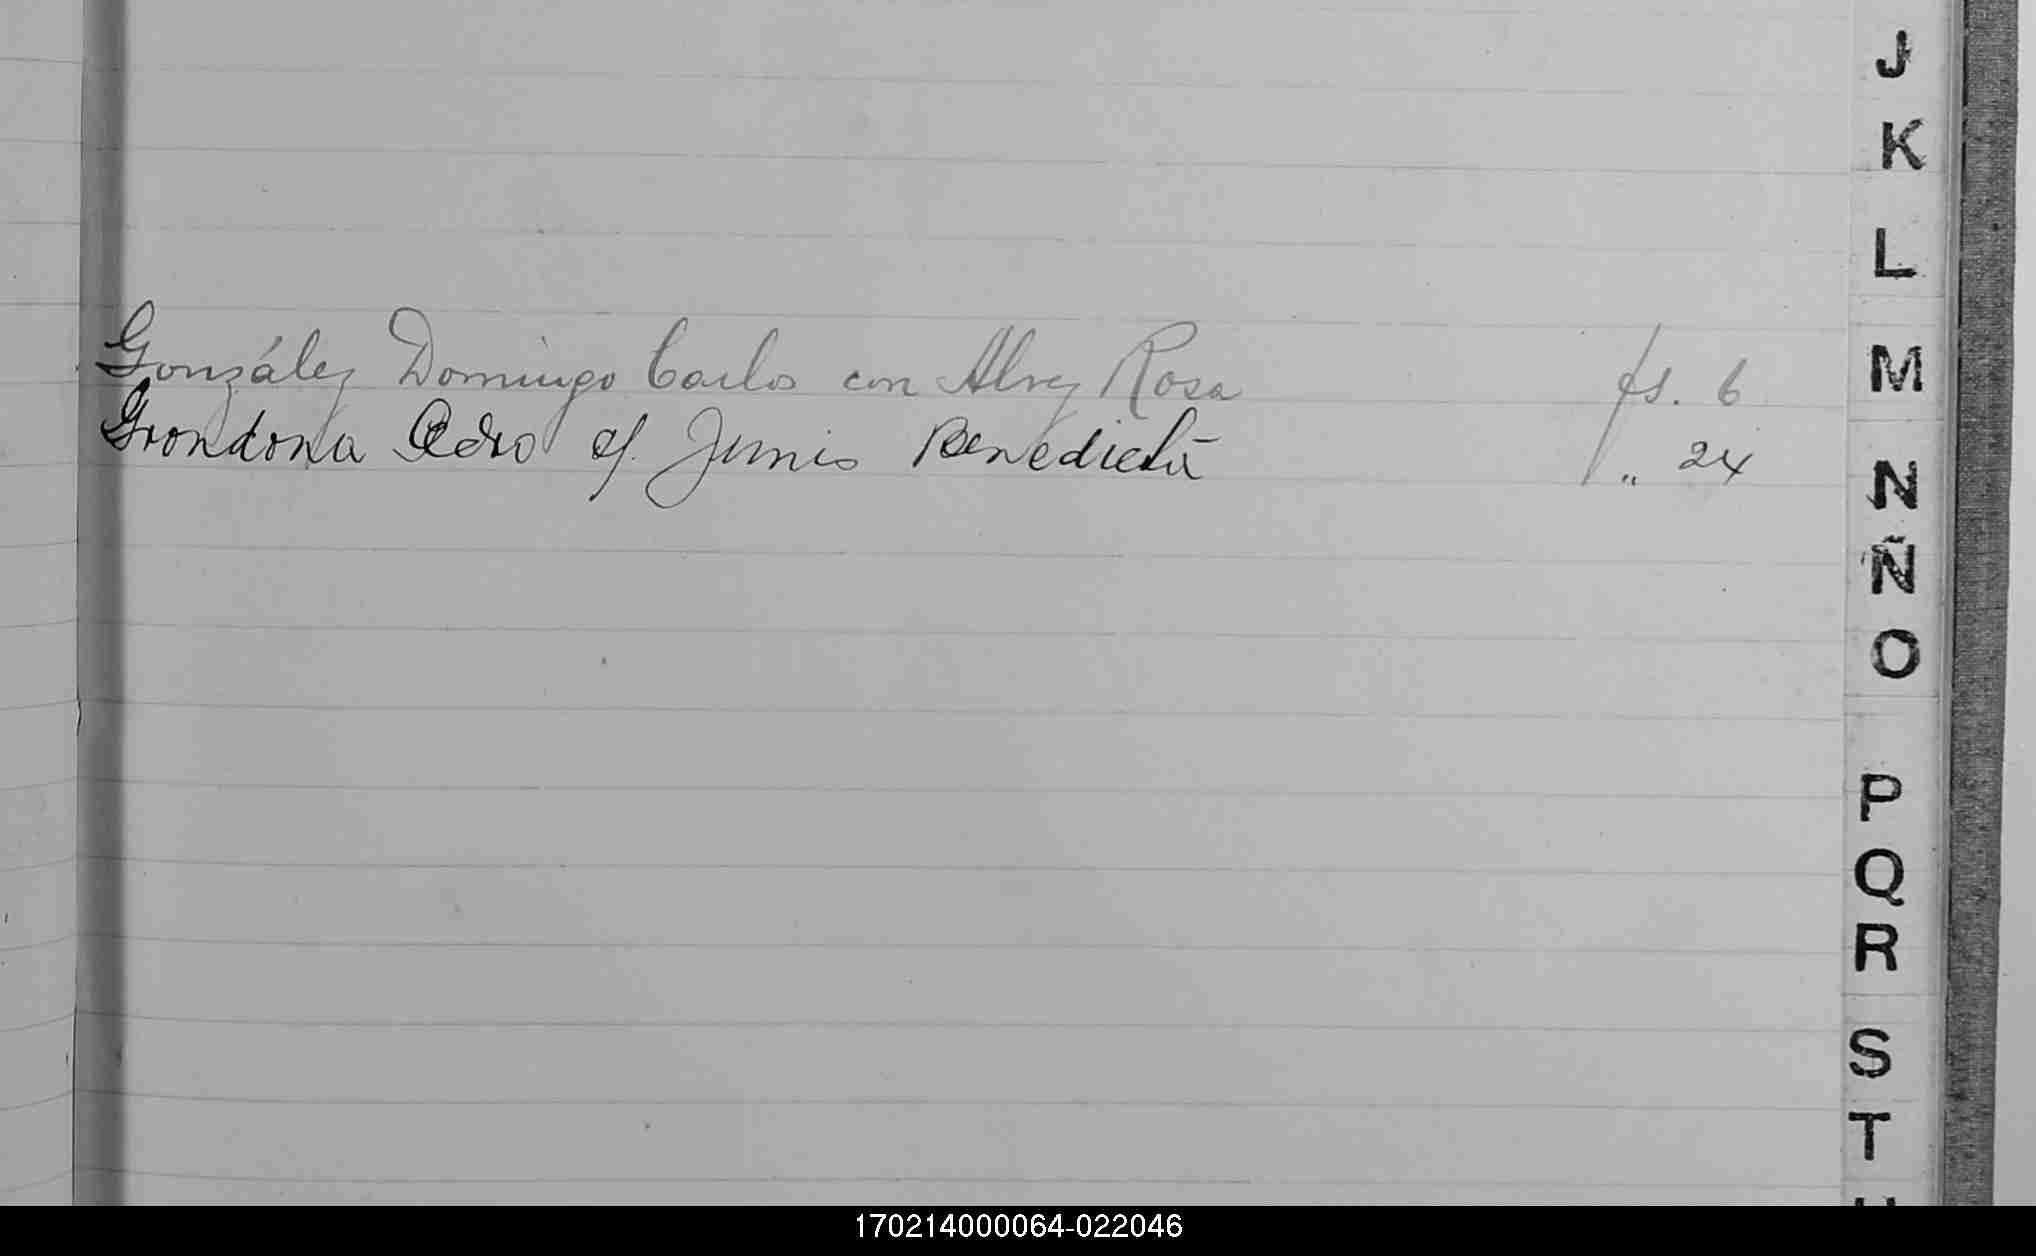 J
K
L
González Domingo Carlos con Alvez Rosa fs. 6
M
Grondona Pedro c/. Junis Benedicta " 24
N
Ñ
O
P
Q
R
S
T
170214000064-022046